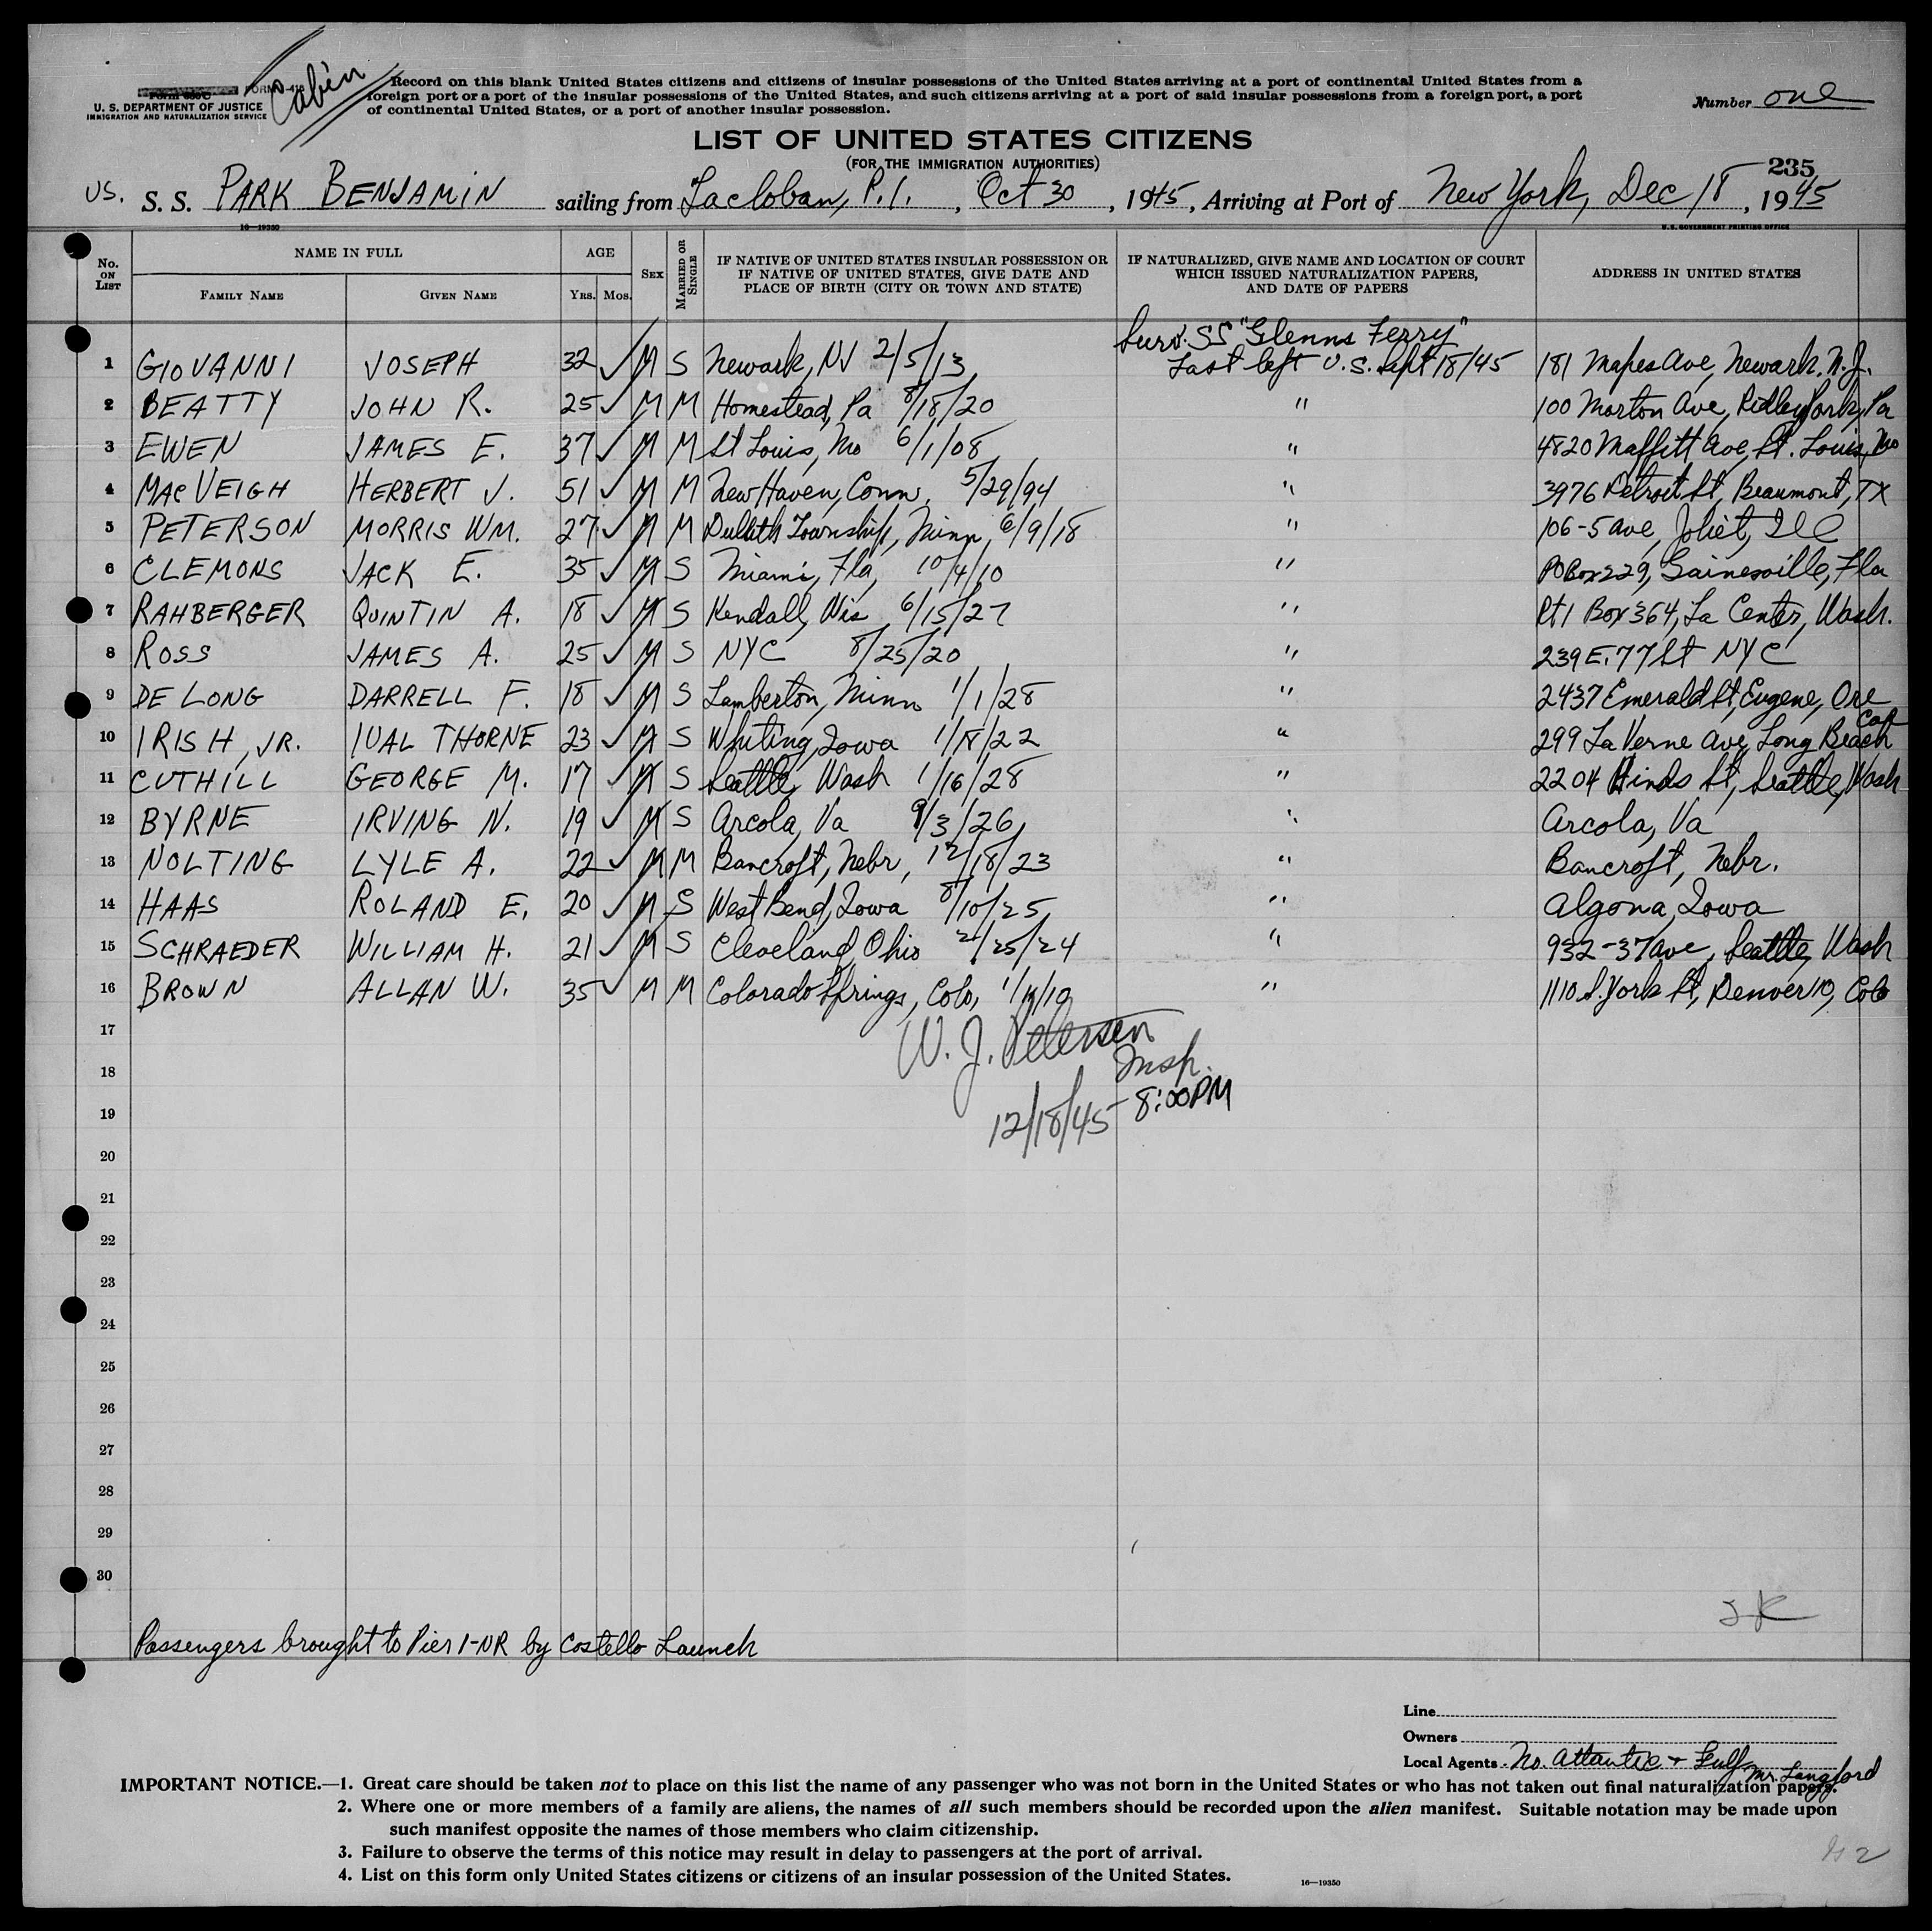 Cabin
FORM I-415
U. S. DEPARTMENT OF JUSTICE
IMMIGRATION AND NATURALIZATION SERVICE
Record on this blank United States citizens and citizens of insular possessions of the United States arriving at a port of continental United States from a
foreign port or a port of the insular possessions of the United States, and such citizens arriving at a port of said insular possessions from a foreign port, a port
of continental United States, or a port of another insular possession.
Number one
LIST OF UNITED STATES CITIZENS
(FOR THE IMMIGRATION AUTHORITIES)
235
US. S. S. PARK BENJAMIN sailing from Tacloban, P.I., Oct 30, 1945, Arriving at Port of New York, Dec 18, 1945
16—19350
U.S. GOVERNMENT PRINTING OFFICE
No. ON LIST NAME IN FULL AGE SEX MARRIED OR SINGLE IF NATIVE OF UNITED STATES INSULAR POSSESSION OR IF NATIVE OF UNITED STATES, GIVE DATE AND PLACE OF BIRTH (CITY OR TOWN AND STATE) IF NATURALIZED, GIVE NAME AND LOCATION OF COURT WHICH ISSUED NATURALIZATION PAPERS, AND DATE OF PAPERS ADDRESS IN UNITED STATES
FAMILY NAME GIVEN NAME YRS. MOS.
Surv. SS "Glenns Ferry"
1 GIOVANNI JOSEPH 32 ✓ M S Newark, NJ 2/5/13 Last left U.S. Sept 18/45 181 Mapes Ave, Newark, N.J.
2 BEATTY JOHN R. 25 ✓ M M Homestead, Pa 8/18/20 " 100 Morton Ave, Ridley Park, Pa
3 EWEN JAMES E. 37 ✓ M M St Louis, Mo 6/1/08 " 4820 Maffitt Ave, St. Louis, Mo
4 MACVEIGH HERBERT J. 51 ✓ M M New Haven, Conn, 5/29/94 " 3976 Detroit St, Beaumont, TX
5 PETERSON MORRIS WM. 27 ✓ M M Duluth Township, Minn, 6/9/18 " 106-5 ave, Joliet, Ill
6 CLEMONS JACK E. 35 ✓ M S Miami, Fla, 10/4/10 " PO Box 229, Gainesville, Fla
7 RAHBERGER QUINTIN A. 18 ✓ M S Kendall, Wis 6/15/27 " Rt 1 Box 364, La Center, Wash.
8 ROSS JAMES A. 25 ✓ M S NYC 8/25/20 " 239 E. 77 St NYC
9 DE LONG DARRELL F. 18 ✓ M S Lamberton, Minn 1/1/28 " 2437 Emerald St, Eugene, Ore
10 IRISH, JR. IVAL THORNE 23 ✓ M S Whiting, Iowa 1/18/22 " 299 La Verne Ave, Long Beach Cal
11 CUTHILL GEORGE M. 17 ✓ M S Seattle, Wash 1/16/28 " 2204 Hinds St, Seattle, Wash
12 BYRNE IRVING N. 19 ✓ M S Arcola, Va 9/3/26 " Arcola, Va
13 NOLTING LYLE A. 22 ✓ M M Bancroft, Nebr, 12/18/23 " Bancroft, Nebr.
14 HAAS ROLAND E. 20 ✓ M S West Bend, Iowa 8/10/25 " Algona, Iowa
15 SCHRAEDER WILLIAM H. 21 ✓ M S Cleveland, Ohio 2/25/24 " 932-37 ave, Seattle, Wash
16 BROWN ALLAN W. 35 ✓ M M Colorado Springs, Colo, " 1110 S. York St, Denver 10, Colo
17 W. J. Petersen
18 Insp.
19 12/18/45 8:00PM
20
21
22
23
24
25
26
27
28
29
30
Passengers brought to Pier 1-NR by Costello Launch
Line
Owners
Local Agents No. Atlantic + Gulf Mr. Langford
IMPORTANT NOTICE.—1. Great care should be taken not to place on this list the name of any passenger who was not born in the United States or who has not taken out final naturalization papers.
2. Where one or more members of a family are aliens, the names of all such members should be recorded upon the alien manifest. Suitable notation may be made upon
such manifest opposite the names of those members who claim citizenship.
3. Failure to observe the terms of this notice may result in delay to passengers at the port of arrival.
4. List on this form only United States citizens or citizens of an insular possession of the United States.
16—19350